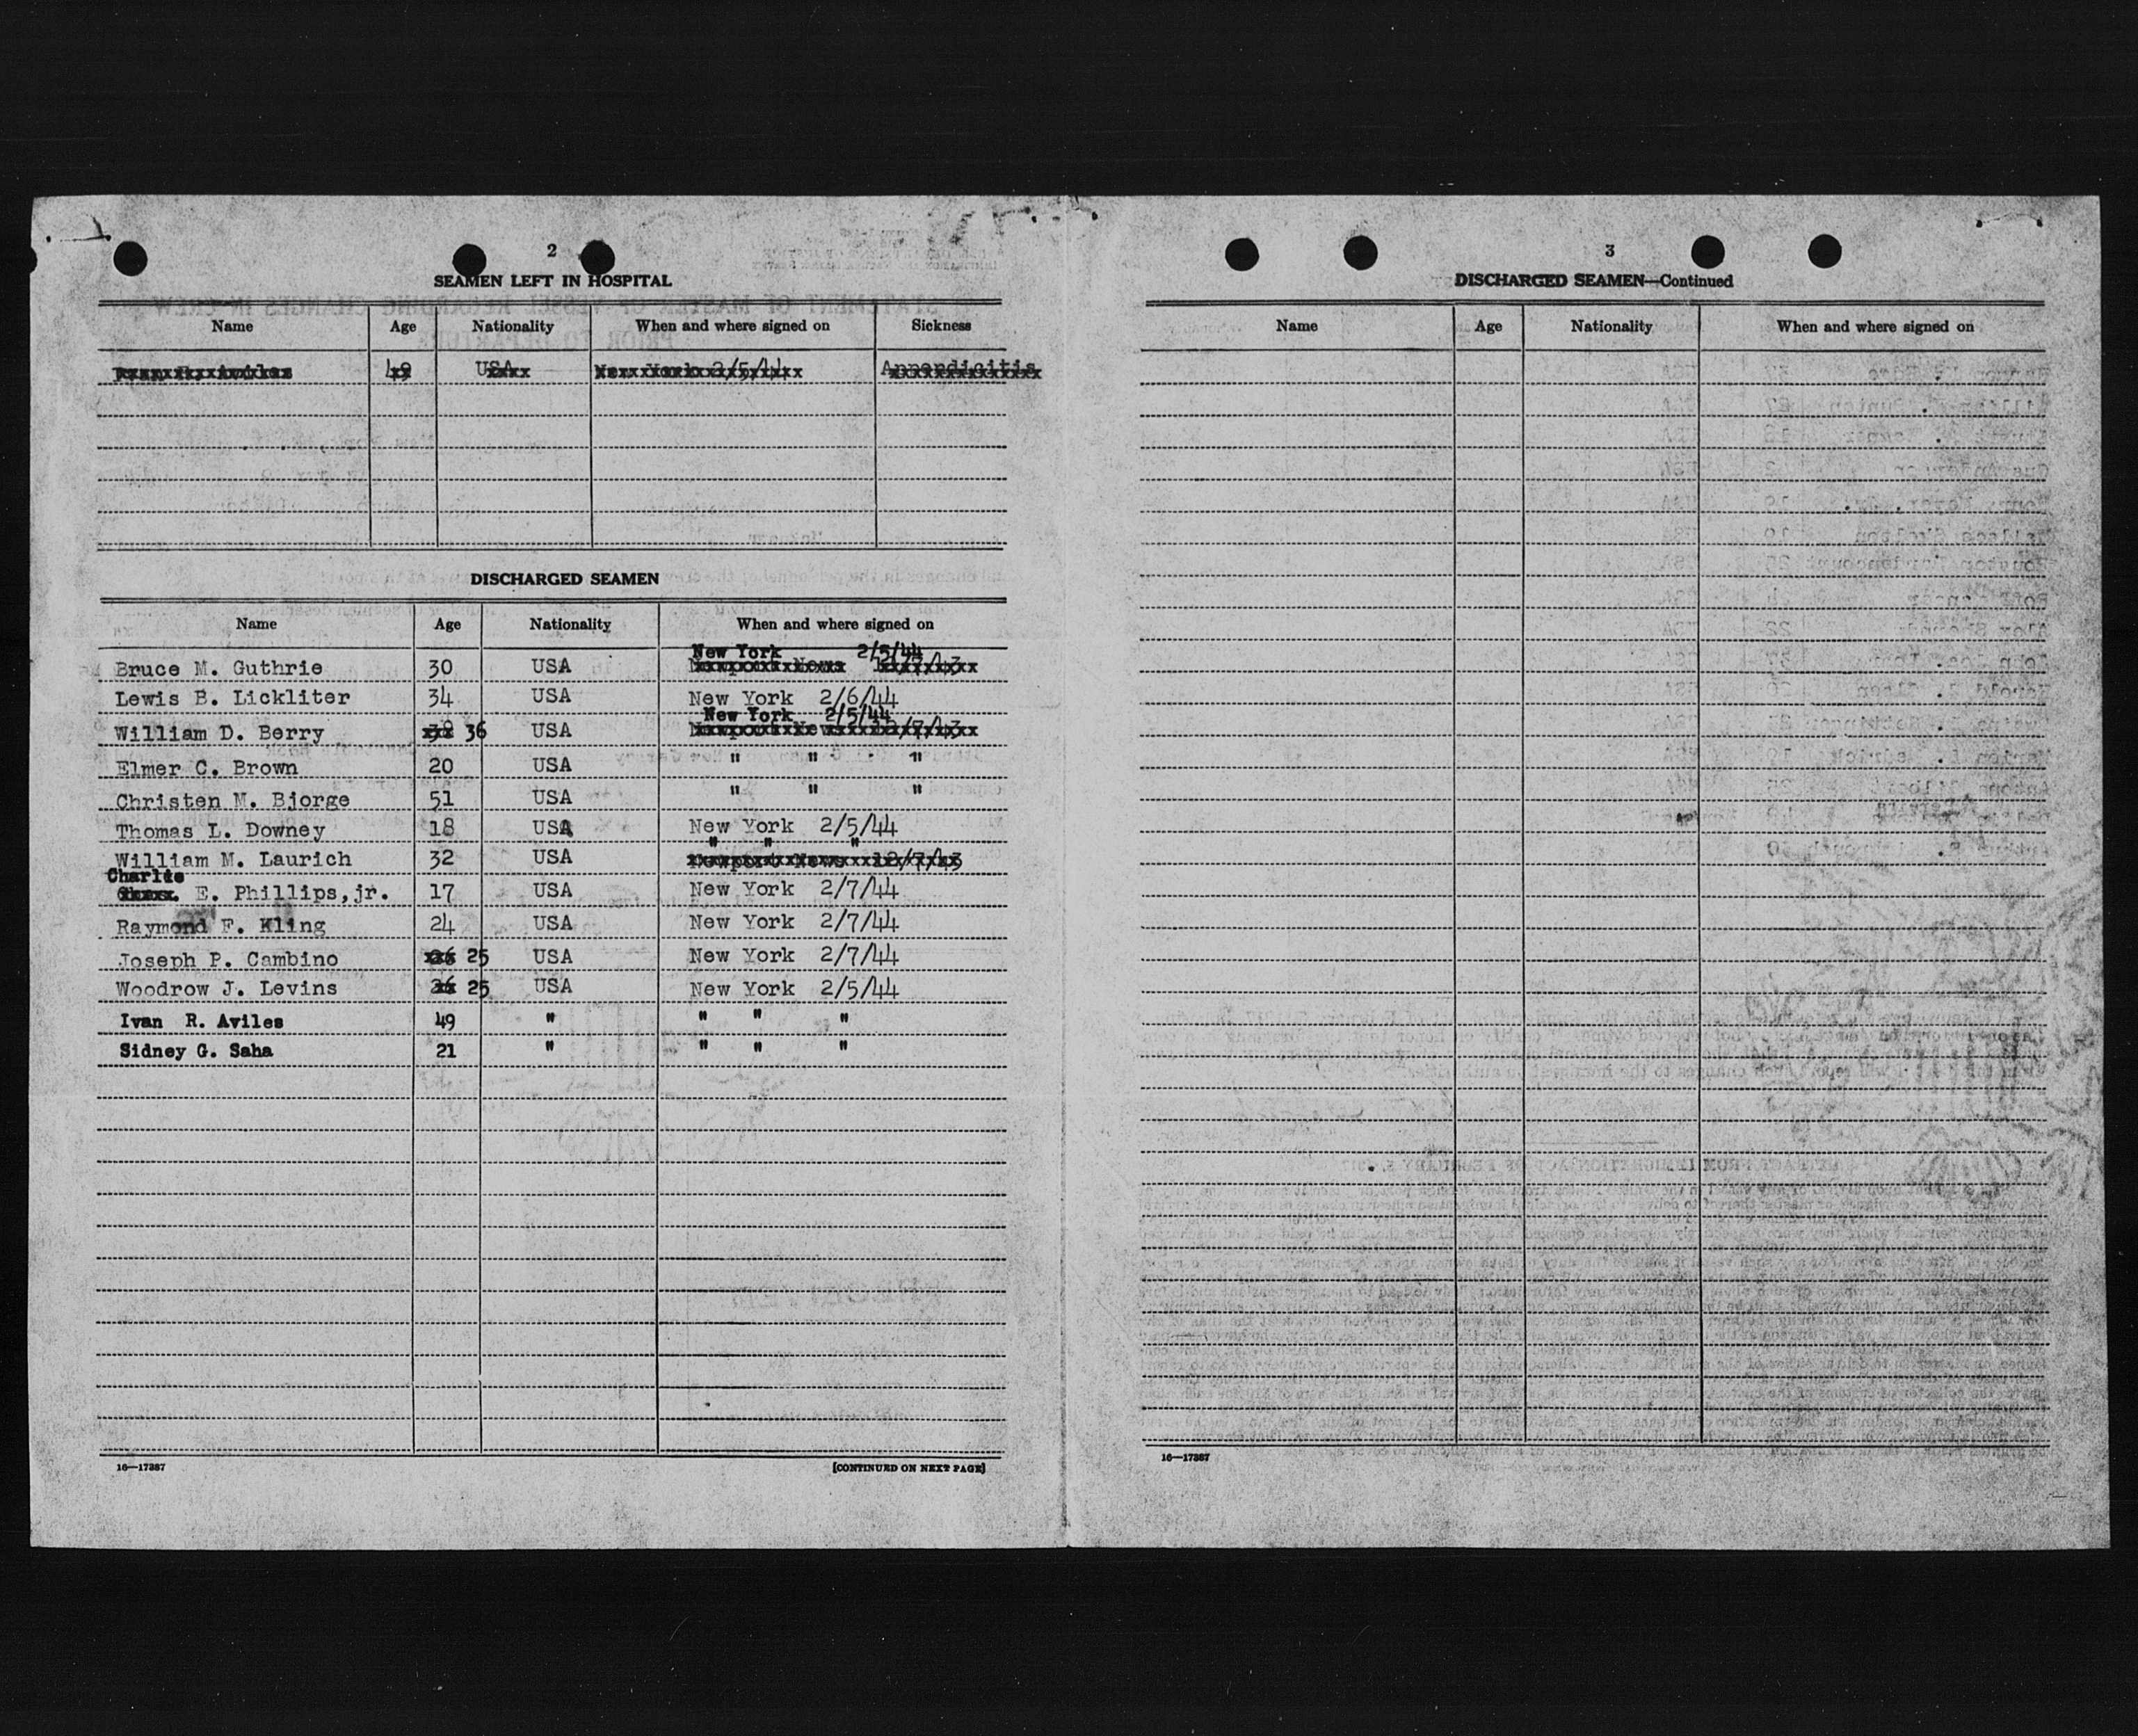 2
SEAMEN LEFT IN HOSPITAL
Name Age Nationality When and where signed on Sickness
49 USA New York 2/5/44 Appendicitis
DISCHARGED SEAMEN
Name Age Nationality When and where signed on
New York 2/5/44
Bruce M. Guthrie 30 USA
Lewis B. Lickliter 34 USA New York 2/6/44
New York 2/5/44
William D. Berry 38 36 USA
Elmer C. Brown 20 USA " " "
Christen M. Bjorge 51 USA " " "
Thomas L. Downey 18 USA New York 2/5/44
" " "
William M. Laurich 32 USA Newport News 12/7/43
Charlie
E. Phillips,jr. 17 USA New York 2/7/44
Raymond F. Kling 24 USA New York 2/7/44
Joseph P. Cambino 26 25 USA New York 2/7/44
Woodrow J. Levins 26 25 USA New York 2/5/44
Ivan R. Aviles 49 " " " "
Sidney G. Saha 21 " " " "
16—17387
[CONTINUED ON NEXT PAGE]
3
DISCHARGED SEAMEN—Continued
Name Age Nationality When and where signed on
16—17387